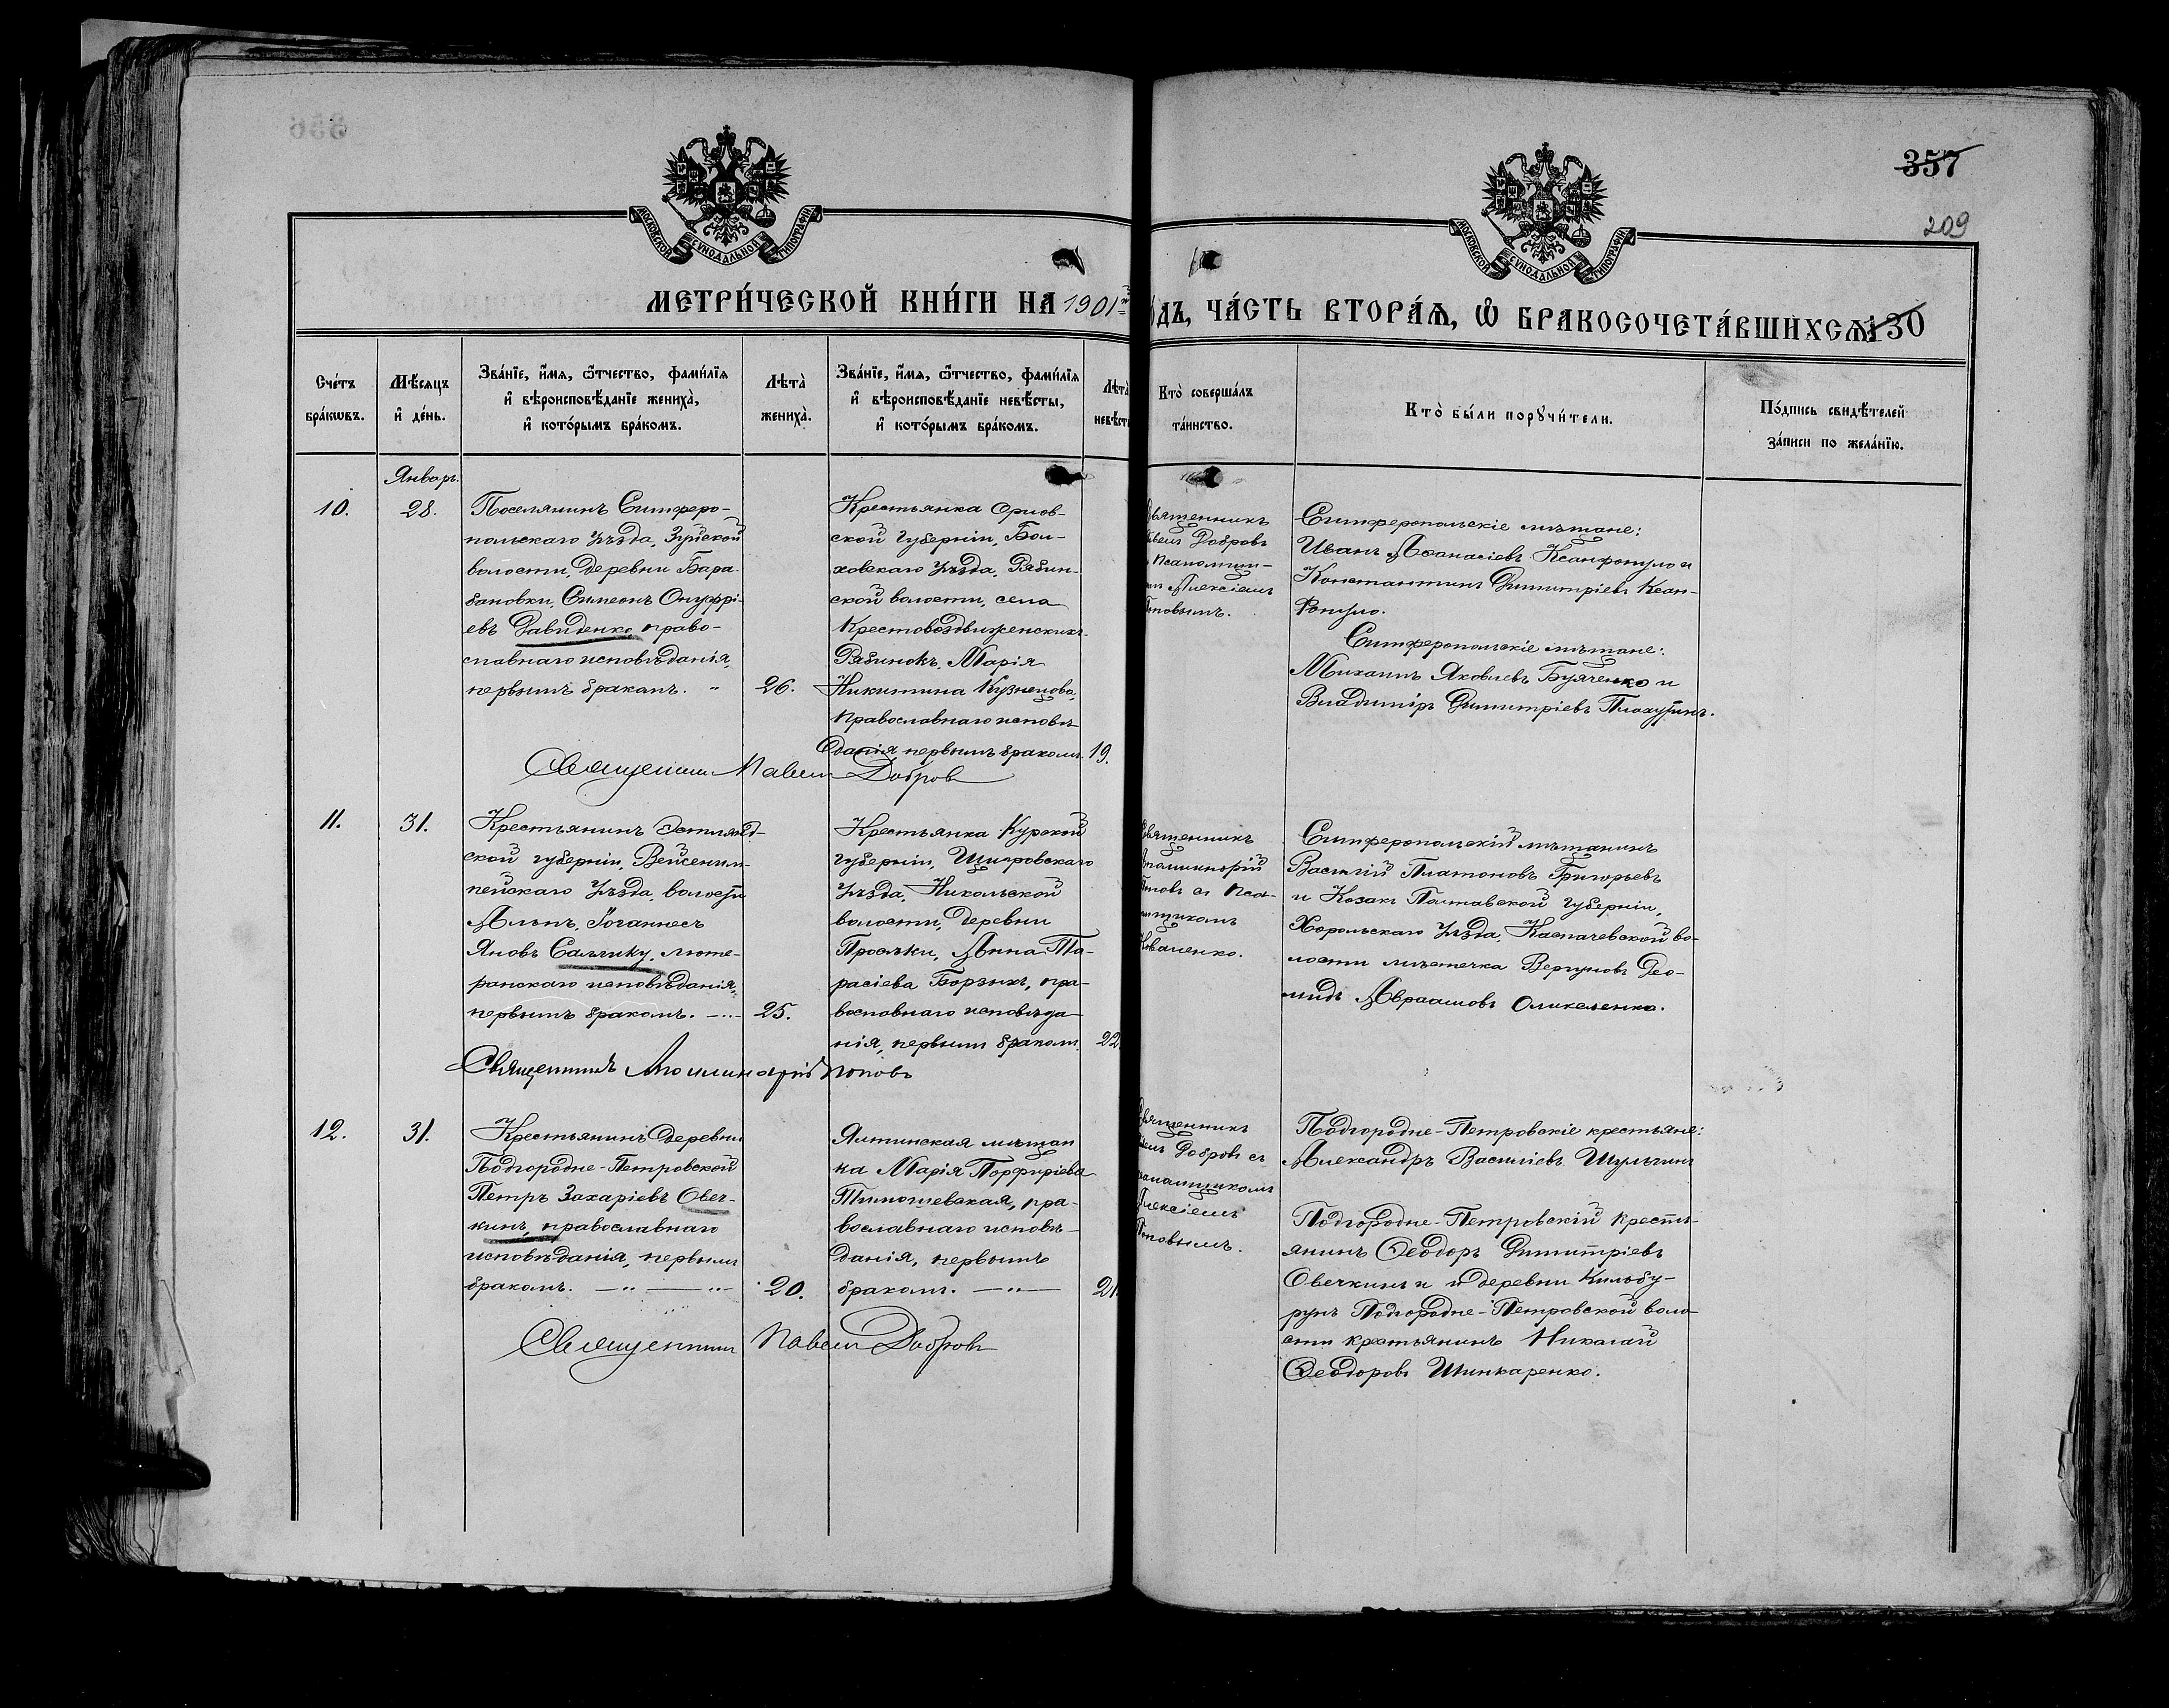 357
209
МОСКОВСКОЙ СѴНОДАЛЬНОЙ ТИПОГРАФІИ
МОСКОВСКОЙ СѴНОДАЛЬНОЙ ТИПОГРАФІИ
МЕТРИ́ЧЕСКОЙ КНИ́ГИ НА 1901
ДЪ, ЧА́СТЬ ВТОРА́Ѧ, Ѽ БРАКОСОЧЕТА́ВШИХСѦ
130
Сче́тъ
бра́кѡвъ.
Мѣ́сяцъ
и҆ де́нь.
Зва́нїе, и҆́мя, ѻ҆́тчество, фами́лїя
и҆ вѣроисповѣ́данїе жениха̀,
и҆ кото́рымъ бра́комъ.
Лѣта̀
жениха̀.
Зва́нїе, и҆́мя, ѻ҆́тчество, фами́лїя
и҆ вѣроисповѣ́данїе невѣ́сты,
и҆ кото́рымъ бра́комъ.
Лѣта̀
невѣ́ст
Кто̀ соверша́лъ
та́инство.
Кто̀ бы́ли порꙋчи́тели.
По́дпись свидѣ́телей
за́писи по жела́нїю.
Январь.
10.
28.
Поселянинъ Симферо-
польскаго уѣзда, Зуйской
волости, деревни Бара-
бановки, Симеонъ Онуфрі-
евъ Давиденко, право-
славнаго исповѣданія,
первымъ бракомъ. "
26.
Крестьянка Орлов-
ской губерніи, Бол-
ховскаго уѣзда, Рябин-
ской волости, села
Крестовоздвиженскихъ
Рябинокъ, Марія
Никитина Кузнецова,
православнаго исповѣ-
данія, первымъ бракомъ.
19.
вященникъ
авелъ Добровъ
псаломщи-
Алексіемъ
оповымъ.
Симферопольскіе мѣщане:
Иванъ Аѳанасіевъ Ксанфопуло и
Константинъ Димитріевъ Ксан-
фопуло.
Симферопольскіе мѣщане:
Михаилъ Яковлевъ Бузченко и
Владиміръ Димитріевъ
Священникъ Павелъ Добровъ
11.
31.
Крестьянинъ Эстлянд-
ской губерніи, Вейсенш-
нейскаго уѣзда, волости
Альпъ, Іоганнесъ
Яновъ Салчику, люте-
ранскаго исповѣданія,
первымъ бракомъ. — " —
25.
Крестьянка Курской
губерніи, Щигровскаго
уѣзда, Никольской
волости, деревни
Анна Та-
расіева Борзыхъ, пра-
вославнаго исповѣда-
нія, первымъ бракомъ.
22
вященникъ
поллинарій
Поповъ съ пса-
мщикомъ
Коваленко.
Симферопольскій мѣщанинъ
Василій Платоновъ Григорьевъ
и Козакъ Полтавской губерніи,
Хорольскаго уѣзда, во-
лости мѣстечка Вергуновъ Део-
мидъ Авраамовъ Омиксенко.
Священникъ Аполлинарій Поповъ
12.
31.
Крестьянинъ деревни
Подгородне-Петровской
Петръ Захаріевъ Овеч-
кинъ, православнаго
исповѣданія, первымъ
бракомъ. — " — " —
20.
Ялтинская мѣщан
ка Марія Порфиріева
Тимошевская, пра-
вославнаго исповѣ-
данія, первымъ
бракомъ. — " —
21
вященникъ
авелъ Добровъ съ
псаломщикомъ
Алексіемъ
Поповымъ.
Подгородне-Петровскіе крестьяне:
Александръ Василіевъ Шульгинъ
Подгородне-Петровскій кресть-
янинъ Ѳеодоръ Димитріевъ
Овечкинъ и деревни Кильбу-
рунъ Подгородне-Петровской воло-
сти крестьянинъ Николай
Ѳеодоровъ Шинкаренко.
Священникъ Павелъ Добровъ